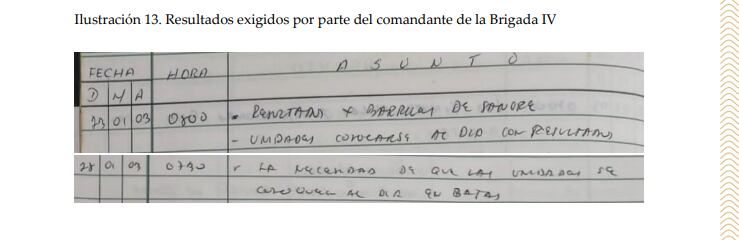 Ilustración 13. Resultados exigidos por parte del comandante de la Brigada IV
FECHA HORA ASUNTO
D M A
23 01 03 0800 - RESULTADOS X BARRILES DE SANGRE
- UNIDADES COLOCARSE AL DIA CON RESULTADOS
28 01 03 0740 - LA NECESIDAD DE QUE LAS UNIDADES SE
COLOQUEN AL DIA EN BAJAS